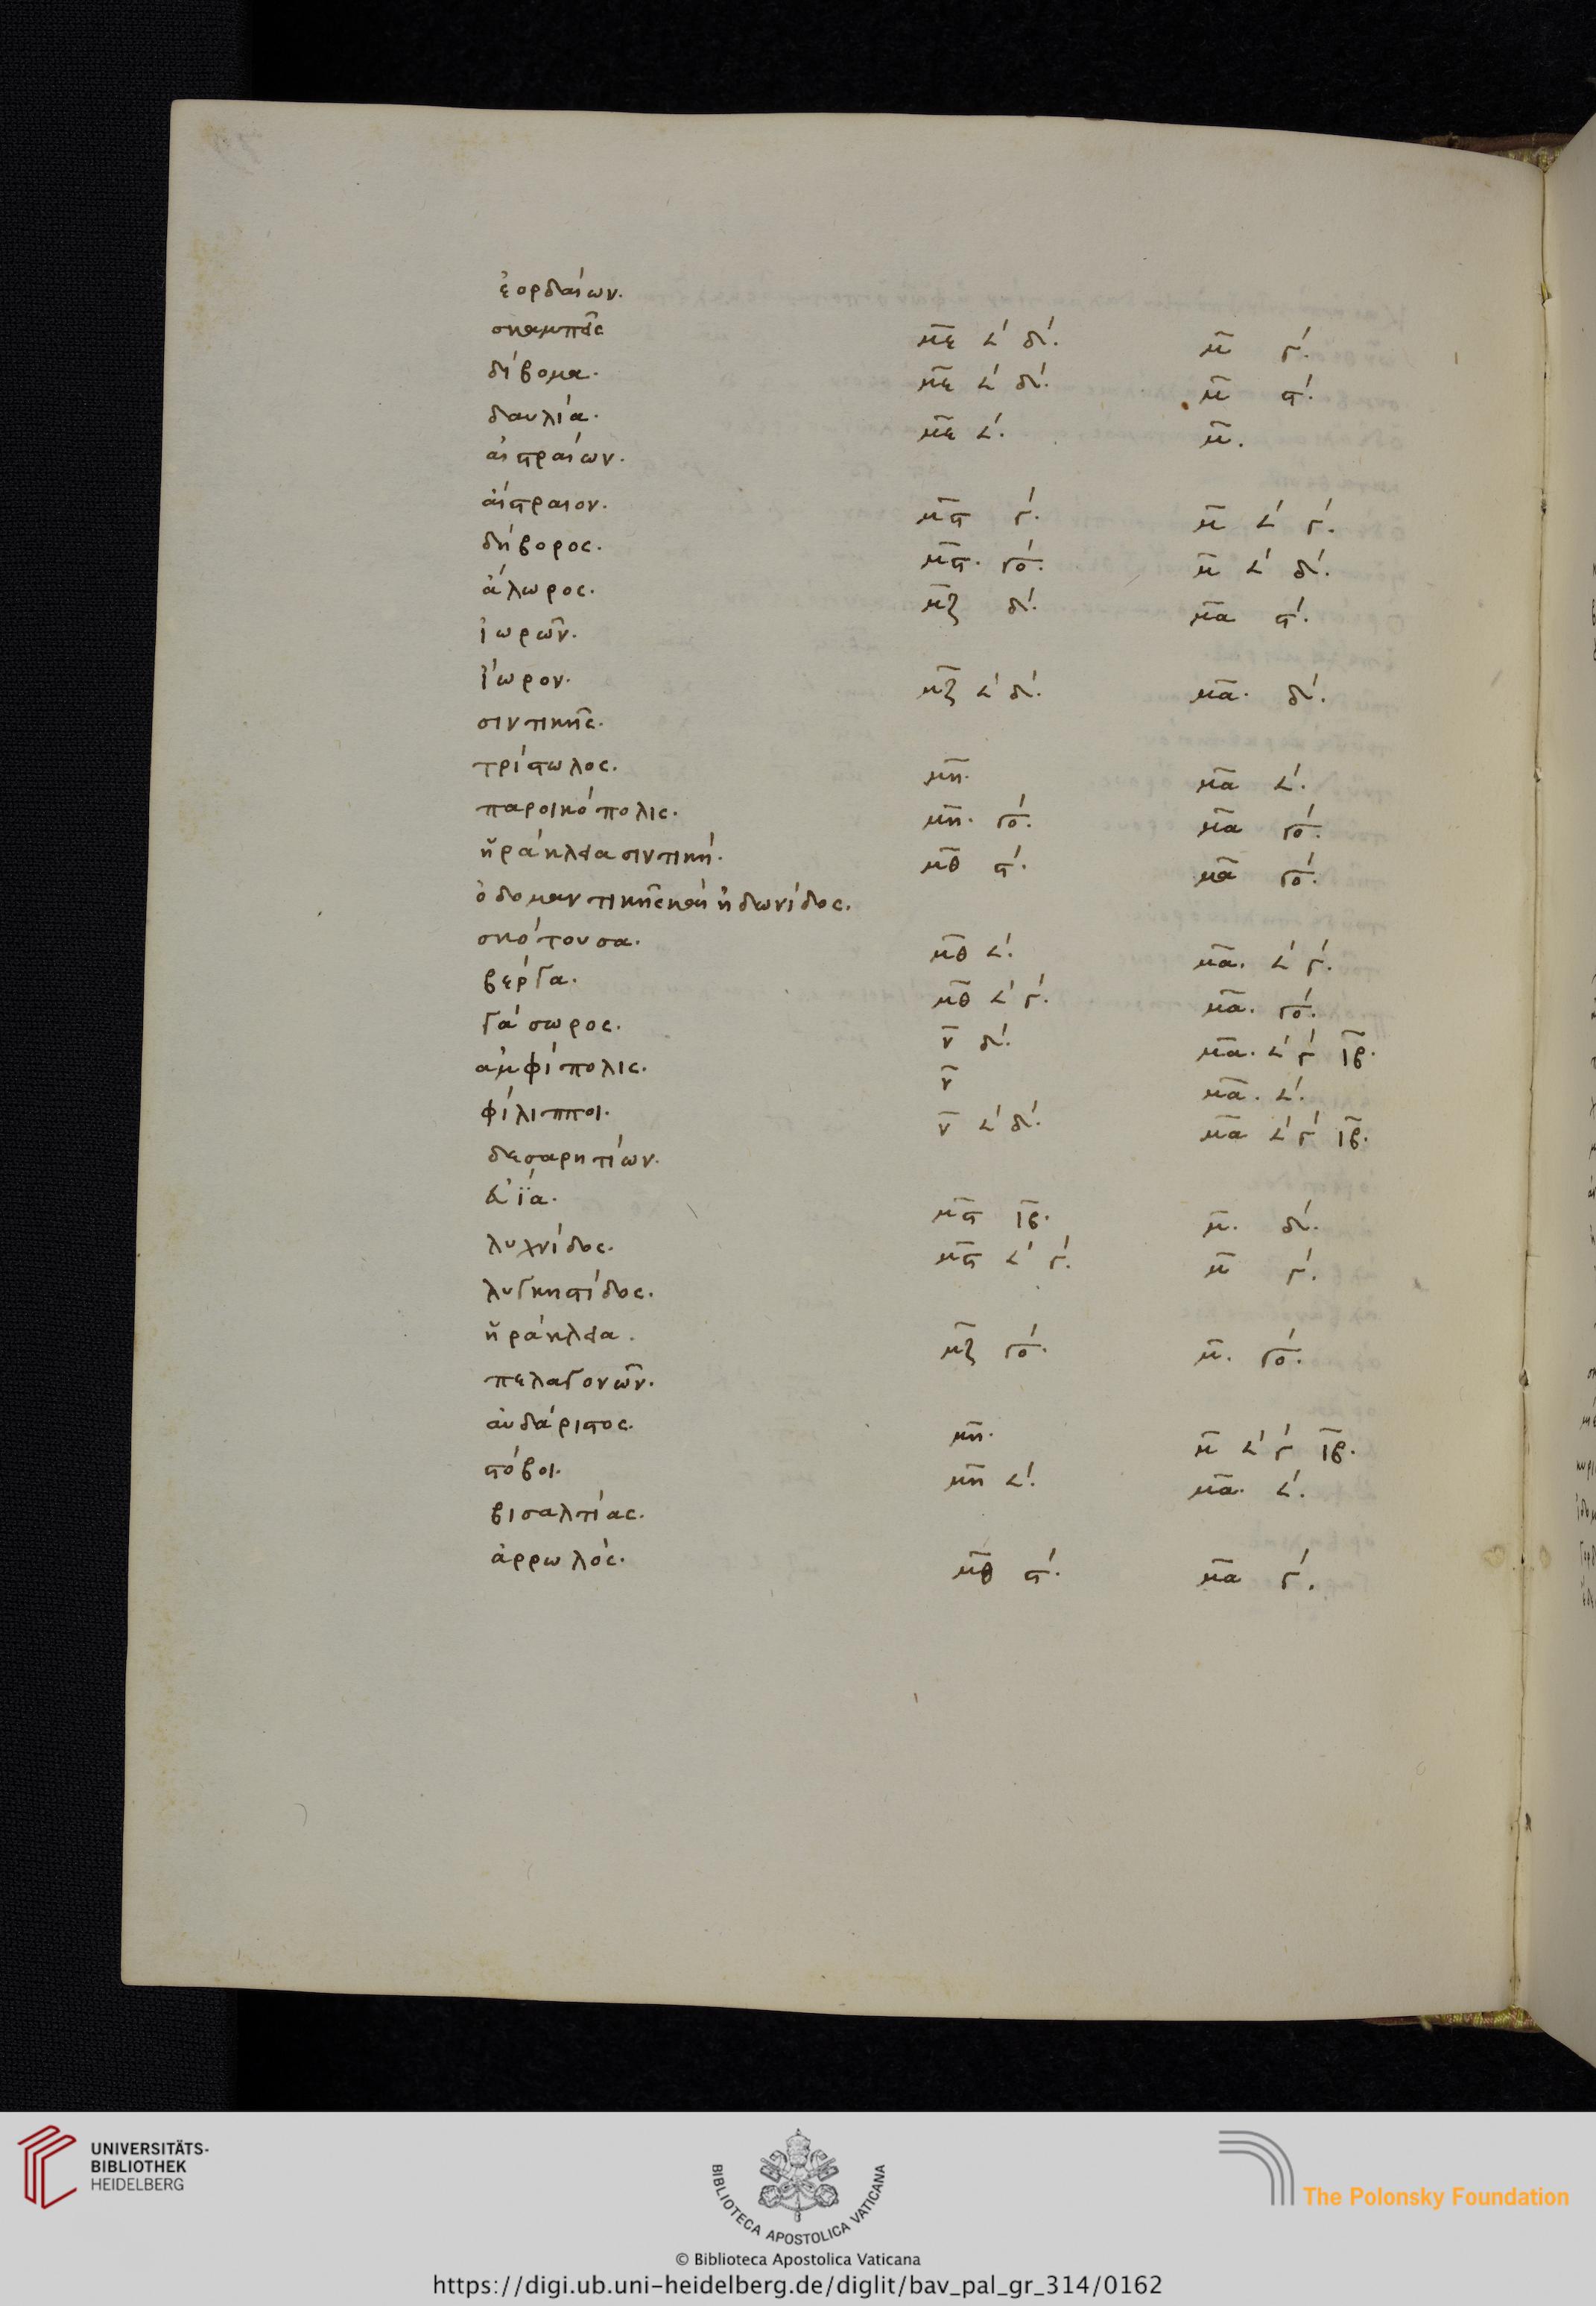 ἐορδαίων.
σκαμπὶς με ∠ʹ δʹ. μ γʹ.
δήβομα. με ∠ʹ δʹ. μ ϛʹ.
δαυλία. με ∠ʹ. μ.
αἰστραίων.
αἴστραιον. μϛ γʹ. μ ∠ʹ γʹ.
δήβορος. μϛ. γοʹ. μ ∠ʹ δʹ.
ἄλωρος. μζ δʹ. μα ϛʹ.
ἰωρῶν.
ἴωρον. μζ ∠ʹ δʹ. μα. δʹ.
σιντικῆς.
τρίστωλος. μη. μα ∠ʹ.
παροικόπολις. μη. γοʹ. μα γοʹ.
ἡράκλεια σιντική. μθ ϛʹ. μα γοʹ.
ὀδομαντικῆς καὶ ἠδωνίδος.
σκότουσα. μθ ∠ʹ. μα. ∠ʹ γʹ.
βέργα. μθ ∠ʹ γʹ. μα. γοʹ.
γάσωρος. ν δʹ. μα. ∠ʹ γʹ ιβ.
ἀμφίπολις. ν μα. ∠ʹ.
φίλιπποι. ν ∠ʹ δʹ. μα ∠ʹ γʹ ιβ.
δεσαρητίων.
λυχνίδος. μϛ ∠ʹ γʹ. μ γʹ.
λυγκηστίδος.
ἡράκλεια. μζ γοʹ. μ. γοʹ.
πελαγονῶν.
ἀνδάριστος. μη. μ ∠ʹ γʹ ιβ.
στόβοι. μη ∠ʹ. μα. ∠ʹ.
βισαλτίας.
ἀρρωλός. μθ ϛʹ. μα γʹ.
UNIVERSITÄTS-
BIBLIOTHEK
HEIDELBERG
BIBLIOTECA APOSTOLICA VATICANA
The Polonsky Foundation
© Biblioteca Apostolica Vaticana
https://digi.ub.uni-heidelberg.de/diglit/bav_pal_gr_314/0162